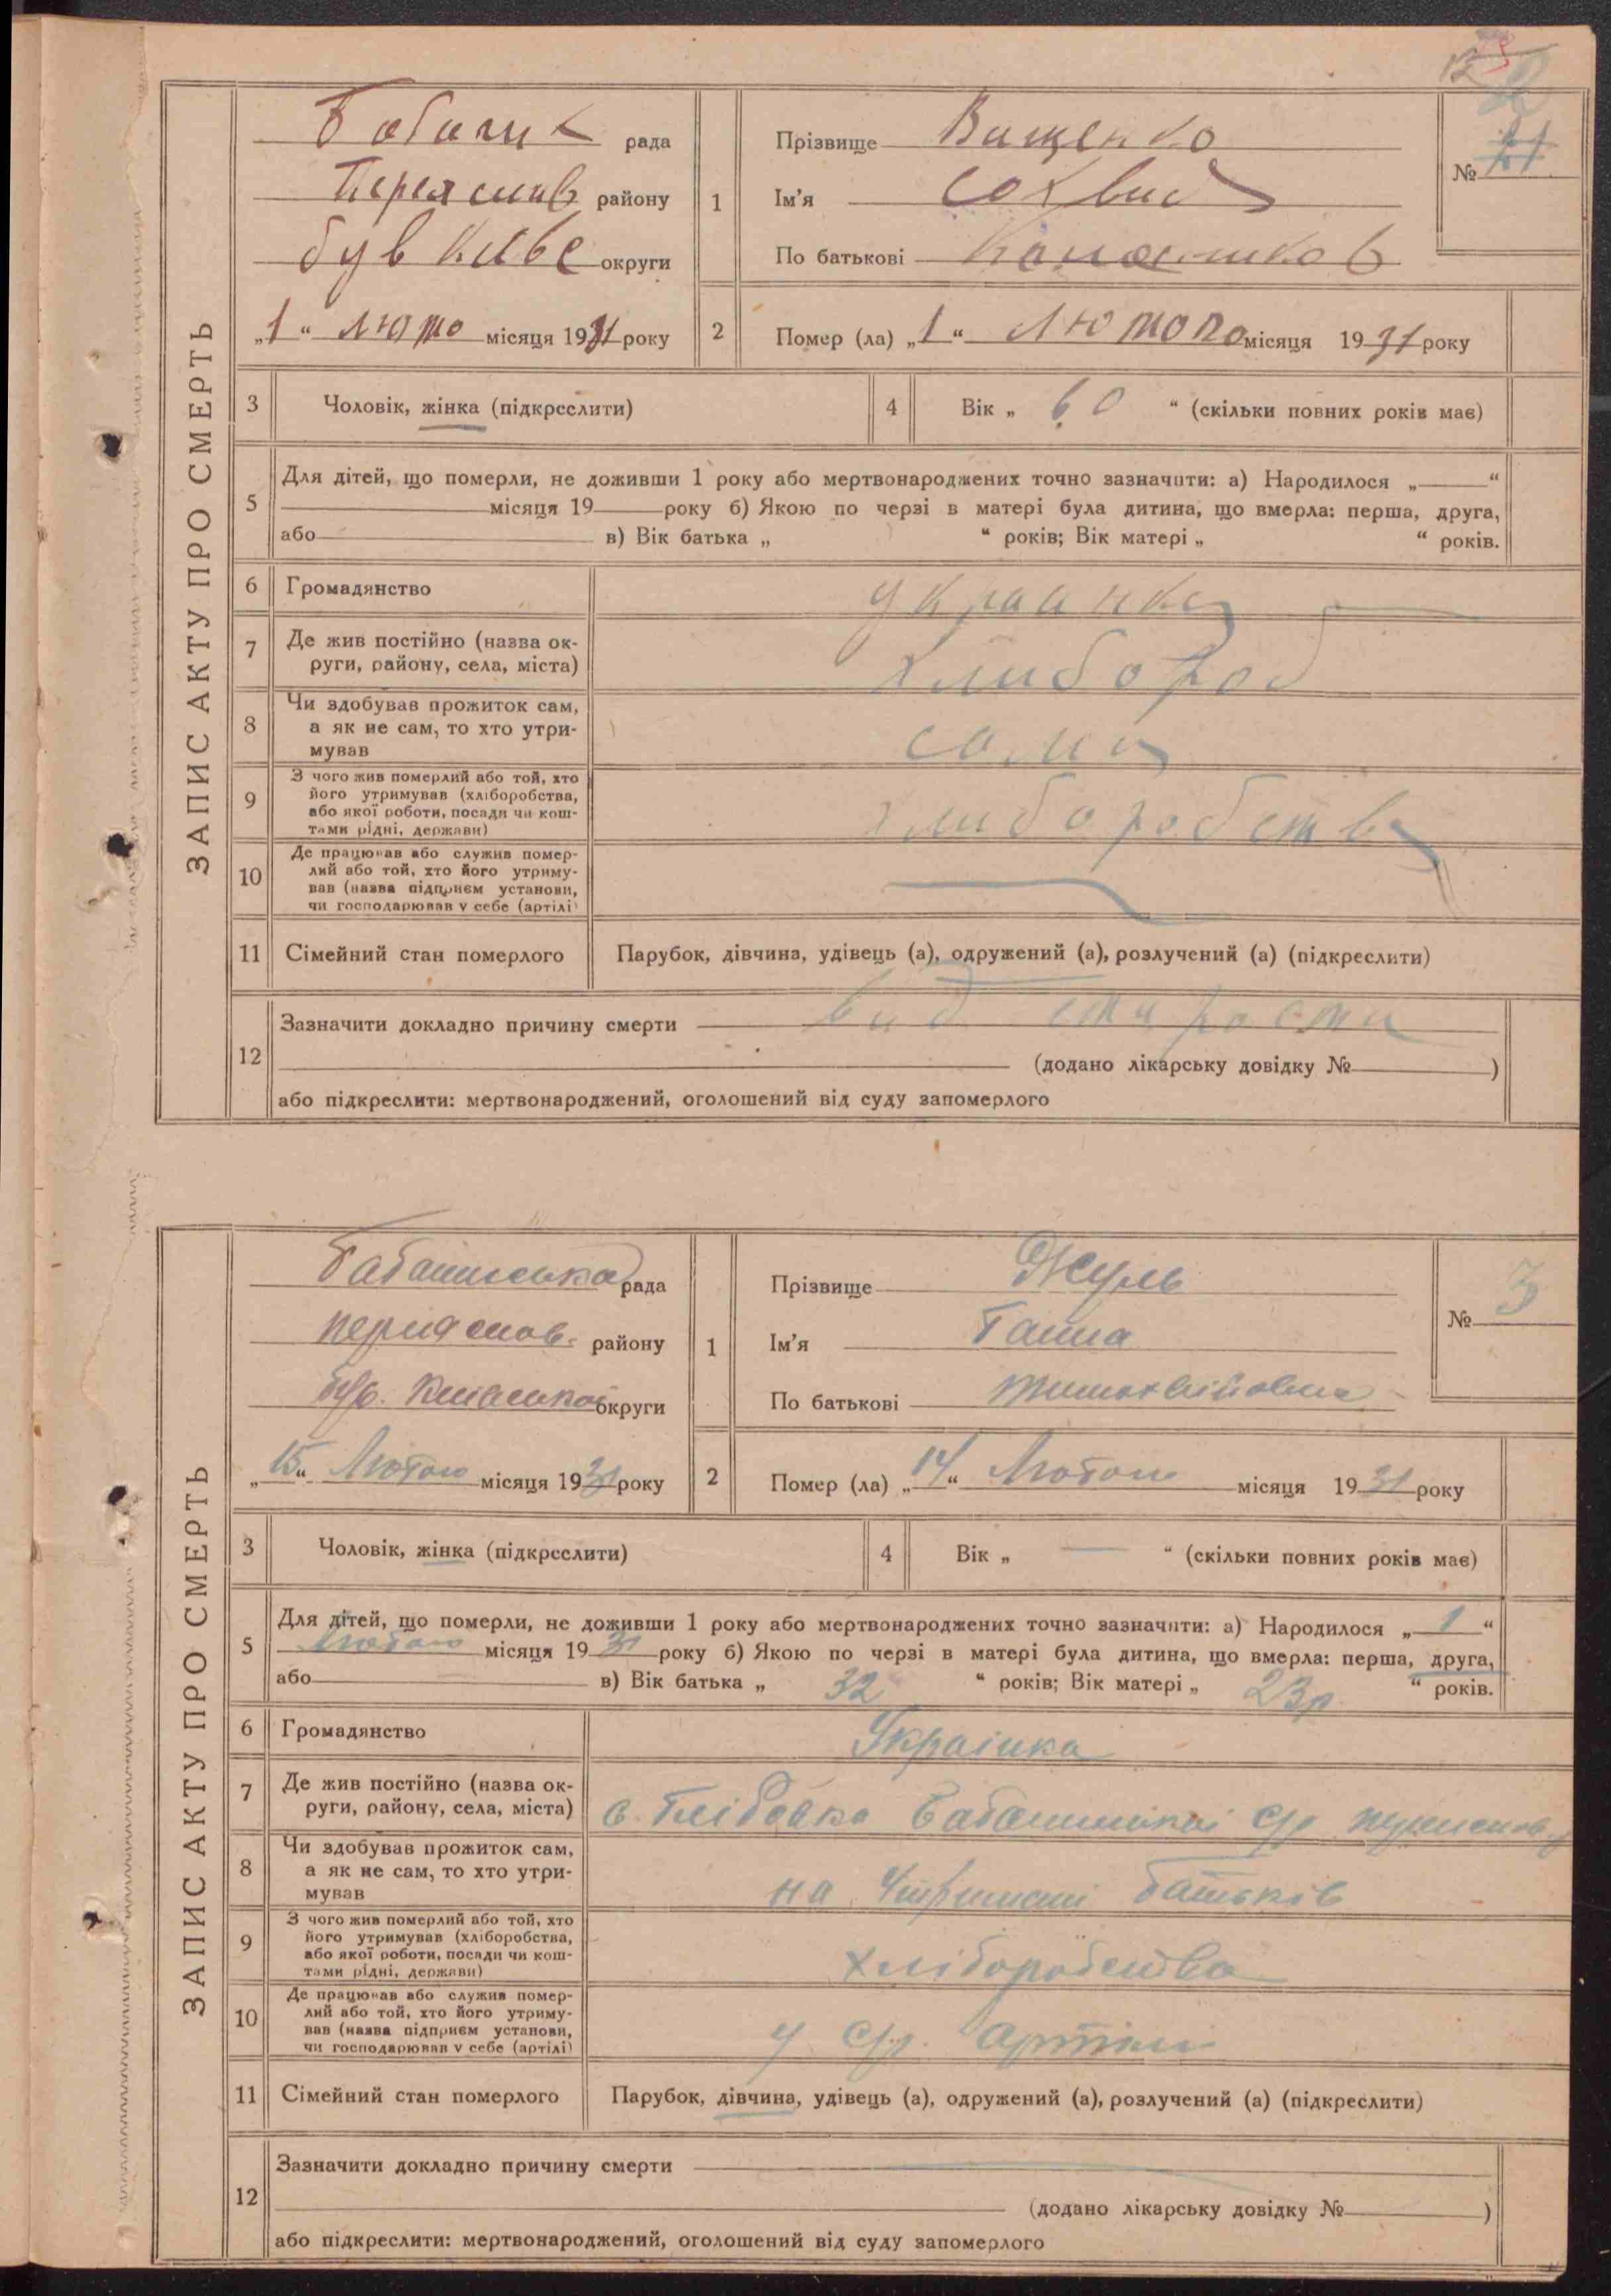 ЗАПИС АКТУ ПРО СМЕРТЬ
рада
району
був Київс округи
„1“ Люто місяця 1931 року
1
Прізвище Ващенко
Ім'я
По батькові
№ 21
2
Помер (ла) „1“ Лютого місяця 1931 року
3 Чоловік, жінка (підкреслити)
4 Вік „60“ (скільки повних років має)
5 Для дітей, що померли, не доживши 1 року або мертвонароджених точно зазначити: а) Народилося „——“
місяця 19 року б) Якою по черзі в матері була дитина, що вмерла: перша, друга,
або в) Вік батька „ “ років; Вік матері „ “ років.
6 Громадянство украинка
7 Де жив постійно (назва ок-
руги, району, села, міста) хлибороб
8 Чи здобував прожиток сам,
а як не сам, то хто утри-
мував сама
9 З чого жив померлий або той, хто
його утримував (хліборобства,
або якої роботи, посади чи кош-
тами рідні, держави) хлиборобства
10 Де працював або служив помер-
лий або той, хто його утриму-
вав (назва підприєм установи,
чи господарював у себе (артілі)
11 Сімейний стан померлого Парубок, дівчина, удівець (а), одружений (а), розлучений (а) (підкреслити)
12 Зазначити докладно причину смерти вид старости
(додано лікарську довідку № )
або підкреслити: мертвонароджений, оголошений від суду запомерлого
ЗАПИС АКТУ ПРО СМЕРТЬ
рада
району
округи
„15“ Лютого місяця 1931 року
1
Прізвище Жуль
Ім'я Ганна
По батькові
№ 3
2
Помер (ла) „14“ Лютого місяця 1931 року
3 Чоловік, жінка (підкреслити)
4 Вік „—“ (скільки повних років має)
5 Для дітей, що померли, не доживши 1 року або мертвонароджених точно зазначити: а) Народилося „1“
Лютого місяця 1931 року б) Якою по черзі в матері була дитина, що вмерла: перша, друга,
або в) Вік батька „32“ років; Вік матері „23р.“ років.
6 Громадянство Українка
7 Де жив постійно (назва ок-
руги, району, села, міста) с.
8 Чи здобував прожиток сам,
а як не сам, то хто утри-
мував на утриманні батьків
9 З чого жив померлий або той, хто
його утримував (хліборобства,
або якої роботи, посади чи кош-
тами рідні, держави) хліборобства
10 Де працював або служив помер-
лий або той, хто його утриму-
вав (назва підприєм установи,
чи господарював у себе (артілі) у с/г. артілі
11 Сімейний стан померлого Парубок, дівчина, удівець (а), одружений (а), розлучений (а) (підкреслити)
12 Зазначити докладно причину смерти
(додано лікарську довідку № )
або підкреслити: мертвонароджений, оголошений від суду запомерлого